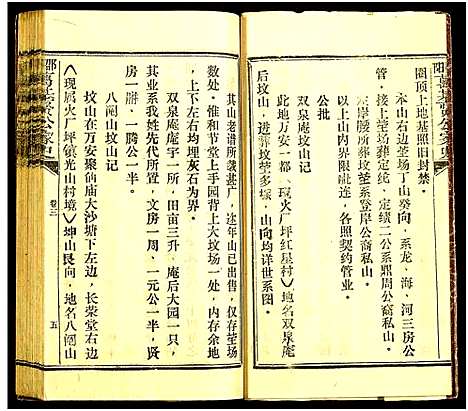 圈顶上地基照旧封禁。
本山右边茔场丁山癸向，系龙、海、河三房公
管。
接上茔场葬定完，定续二公系鼎周公裔私山。
左岸腰所葬坟茔系登岸公裔私山。
以上山内界限毗连，各照契约管业。
公批
双泉庵坟山记
此地万安一都、现火厂坪红星村）地名双泉庵
后坟山，进葬坟茔多塚，山向均详世系图。
其山老谱所载甚广，迄年山已出售，仅存茔场
数处。惟和节堂上手园背上大坟场一处，内存余地
，上下左右均埋灰石为界。
双泉庵庵宇一所，田亩三升，庵后大园一只，
其业系我姓先代所置，文房一周、一元公一半，贤
房一胼，一腾公一半。
八阁山坟山记
坟山在万安聚仙庙大沙塘下左边，长荣堂右边
（现属火厂坪镇光山村境）坤山艮向，地名八阁山
卷三
五